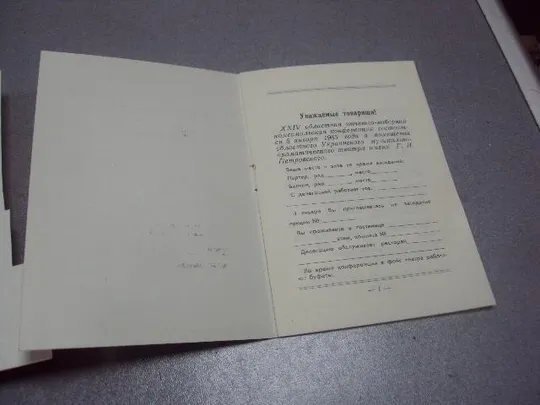 Уважаемые товарищи!
XXIV областная отчетно-выборная
комсомольская конференция состоит-
ся 5 января 1983 года в помещении
областного Украинского музыкально-
драматического театра имени Г. И.
Петровского.
Ваше место в зале во время заседаний:
Партер, ряд ______, место ______
Балкон, ряд ______, место ______
С делегацией работает тов. ______
4 января Вы приглашаетесь на заседание
секции № ______
Вы проживаете в гостинице ______
______ этаж, комната № ______
Делегацию обслуживает ресторан ______
Во время конференции в фойе театра работа-
ют буфеты.
— 1 —